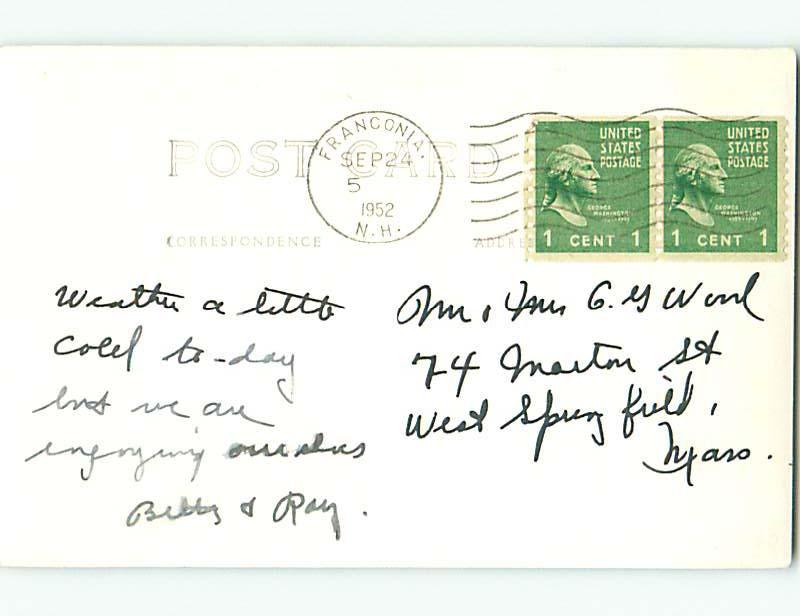 POST CARD
FRANCONIA,
SEP 24
5
1952
N.H.
UNITED
STATES
POSTAGE
GEORGE
WASHINGTON
1 CENT 1
UNITED
STATES
POSTAGE
GEORGE
WASHINGTON
1 CENT 1
CORRESPONDENCE
ADDRE
Weather a little
cold to-day
but we are
enjoying ourselves
Betty & Ray.
Mr. & Mrs G. G Wood
74 St
West Springfield,
Mass.